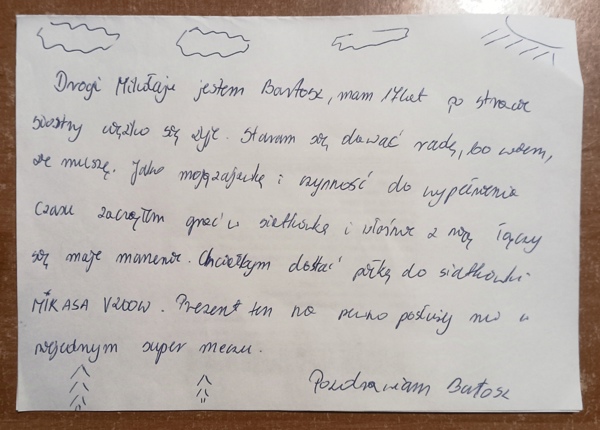 Drogi Mikołaju jestem Bartosz, mam 17 lat po stracie
siostry ciężko się żyje. Staram się dawać radę, bo wiem,
że muszę. Jako moją zajawkę i czynność do wypełnienia
czasu zacząłem grać w siatkówkę i właśnie z nią łączy
się moje marzenie. Chciałbym dostać piłkę do siatkówki
MIKASA V200W. Prezent ten na pewno posłuży mi w
niejednym super meczu.
Pozdrawiam Bartosz